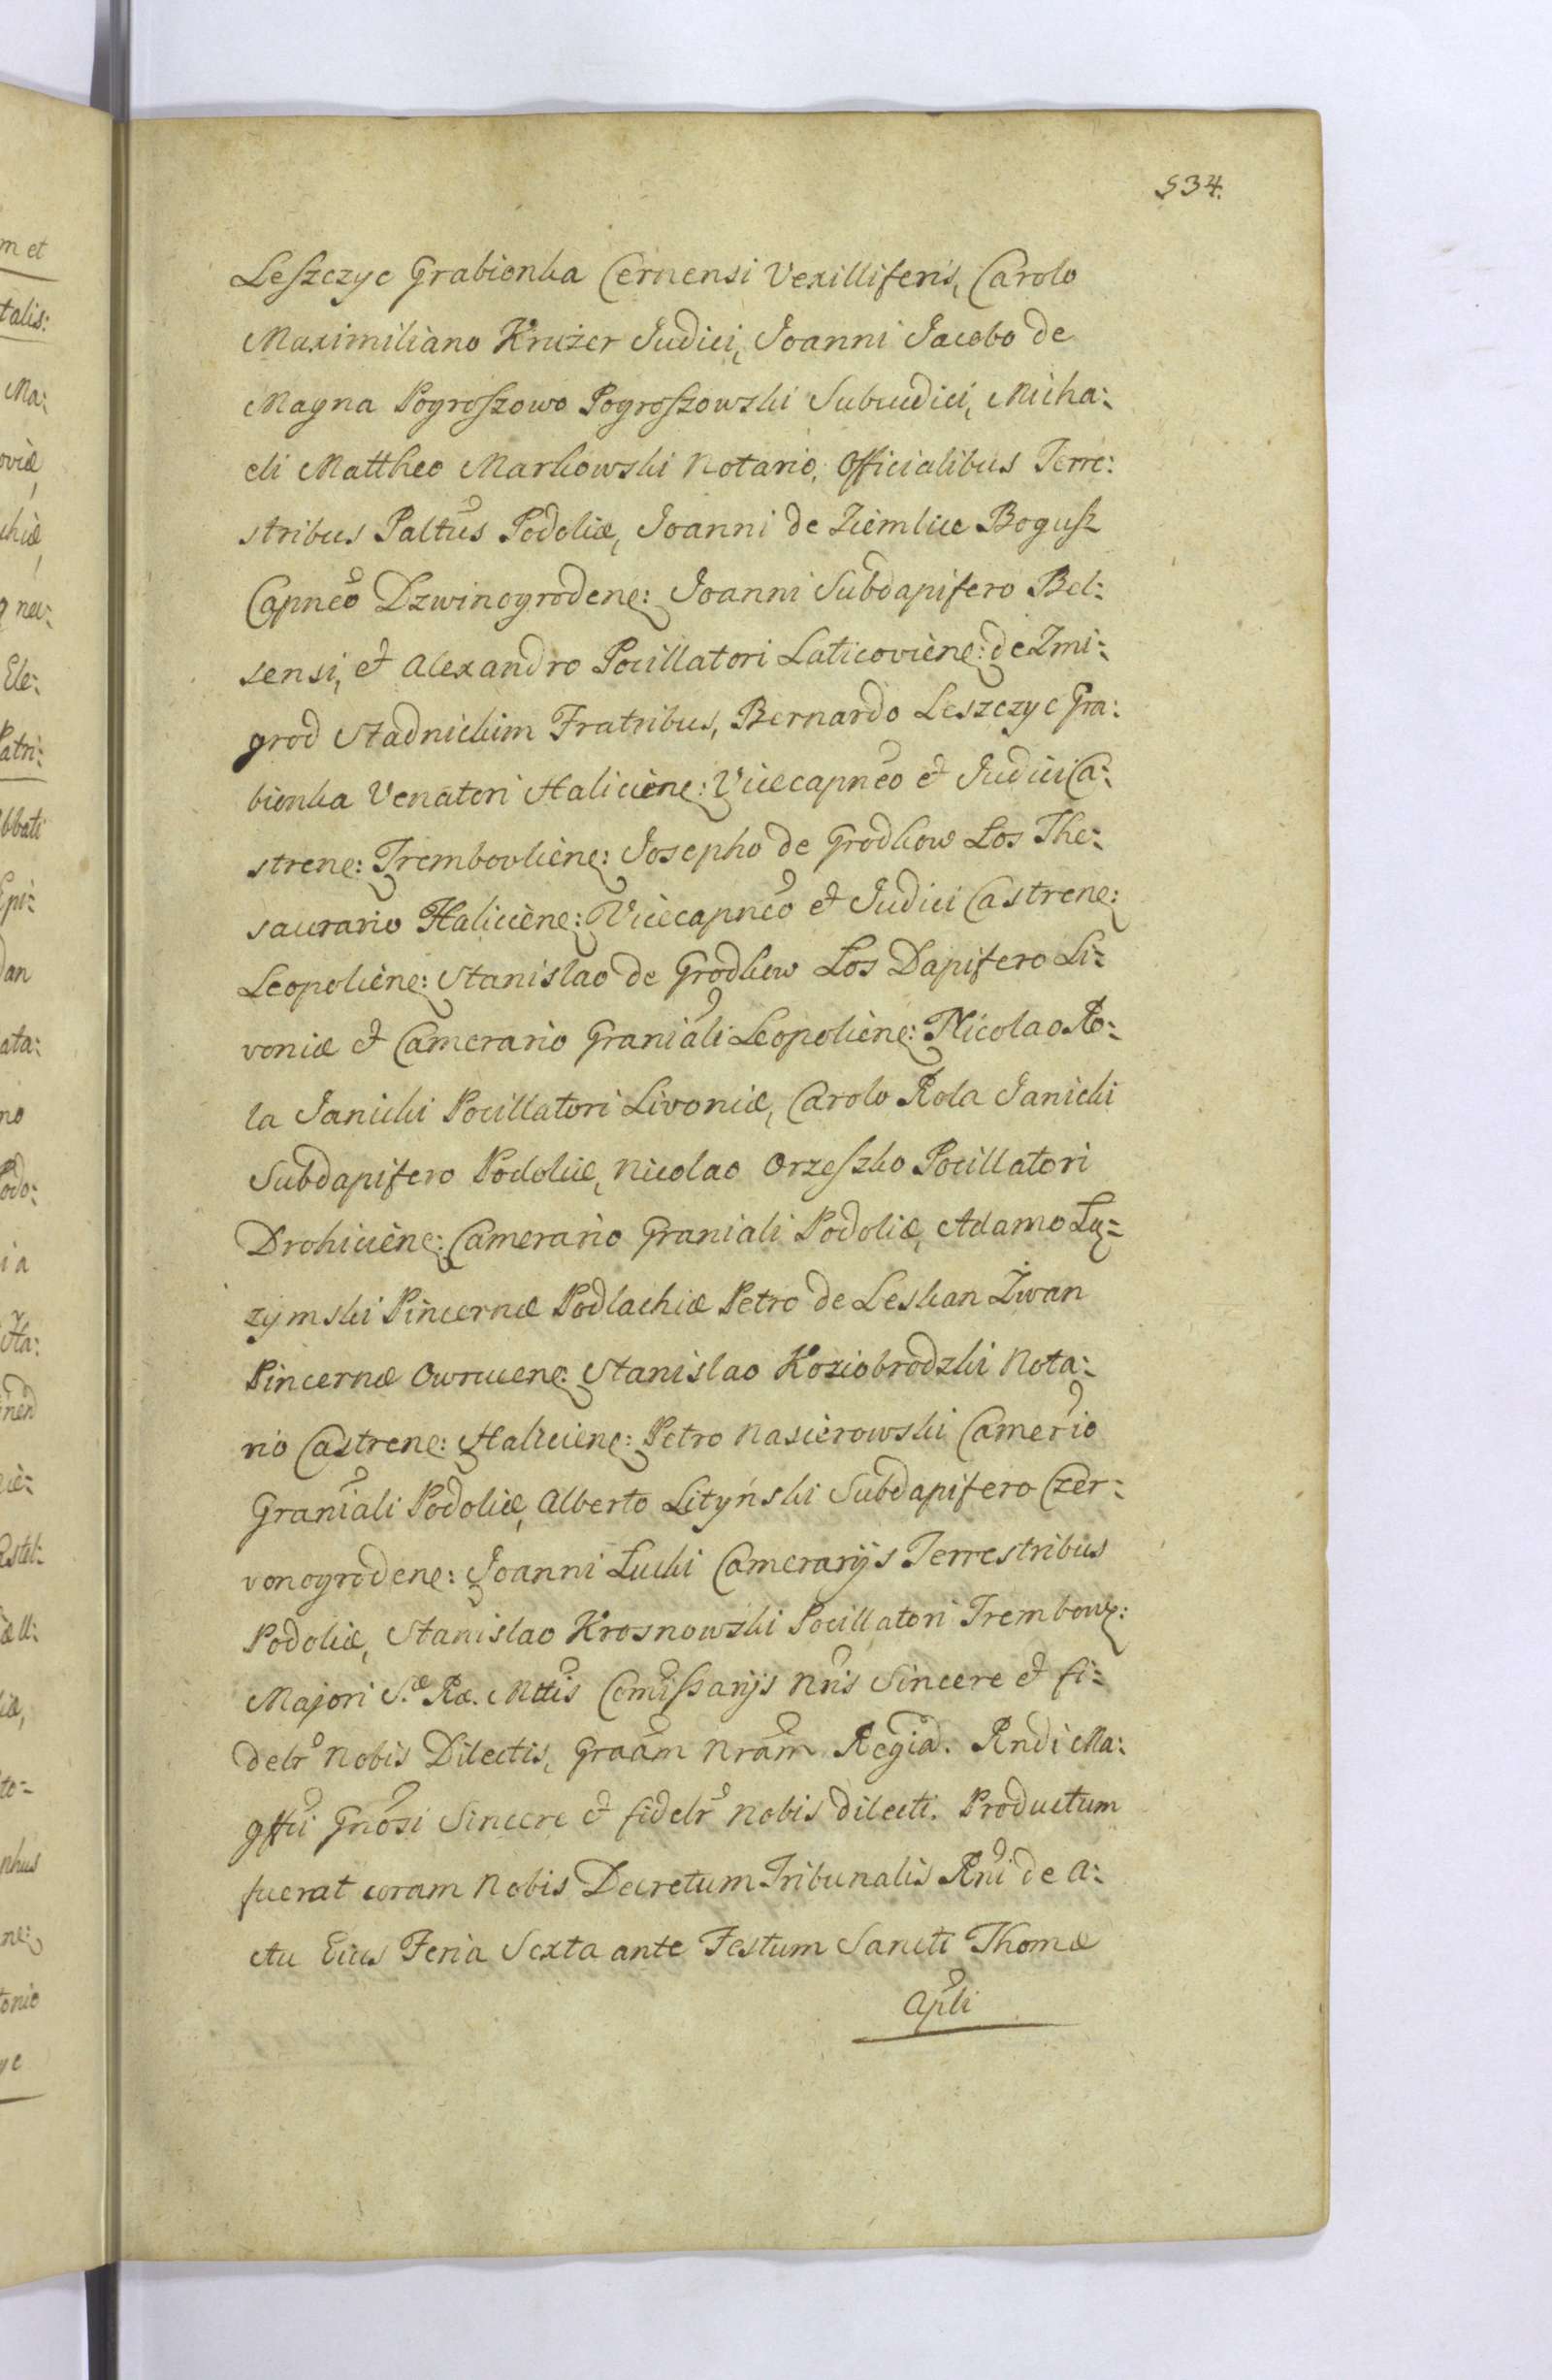 534.
Leszczyc Grabionka Cernensi Vexilliferis, Carolo
Maximiliano Krużer Judici, Joanni Jacobo de
Magna Pogroszowo Pogroszowski Subiudici, Micha:
eli Mattheo Markowski Notario, Officialibus Terre:
stribus Paltũs Podoliæ, Joanni de Ziemlice Bogusz
Capneõ Dzwinogrodenẹ: Joanni Subdapifero Bel:
sensi, et Alexandro Pocillatori Laticovienẹ: de Zmi:
grod Stadnickim Fratribus, Bernardo Leszczyc Gra:
bionka Venatori Halicienẹ: Vicecapneõ et Judici Ca:
strenẹ: Trembovlienẹ: Josepho de Grodkow Łos The:
saurario Halicienẹ: Vicecapneõ et Judici Castrenẹ:
Leopolienẹ: Stanislao de Grodkow Łos Dapifero Li:
voniæ et Camerario Graniãli Leopolienẹ: Nicolao Ro:
la Janicki Pocillatori Livoniæ, Carolo Rola Janicki
Subdapifero Podoliæ, Nicolao Orzeszko Pocillatori
Drohicienẹ: Camerario Graniali Podoliæ, Adamo Łę:
zymski Pincernæ Podlachiæ Petro de Leskan Żwan
Pincernæ Owrucenẹ: Stanislao Koziobrodzki Nota:
rio Castrenẹ: Halicienẹ: Petro Nasierowski Camer̃io
Graniãli Podoliæ, Alberto Lityński Subdapifero Czer:
vonogrodenẹ: Joanni Łucki Camerarijs Terrestribus
Podoliæ, Stanislao Krosnowski Pocillatori Trembow:
Majori S.æ Ræ. Mttis Comĩssarijs Nrĩs Sincere et fi:
delr̃ Nobis Dilectis, Graãm Nrãm Regiã. Rndi Ma:
gffĩi Gnõsi Sincere et fidelr̃ nobis dilecti. Productum
fuerat coram Nobis Decretum Tribunalis Rnĩ de a:
ctu Eius Feria Sexta ante Festum Sancti Thomæ
Aplĩ